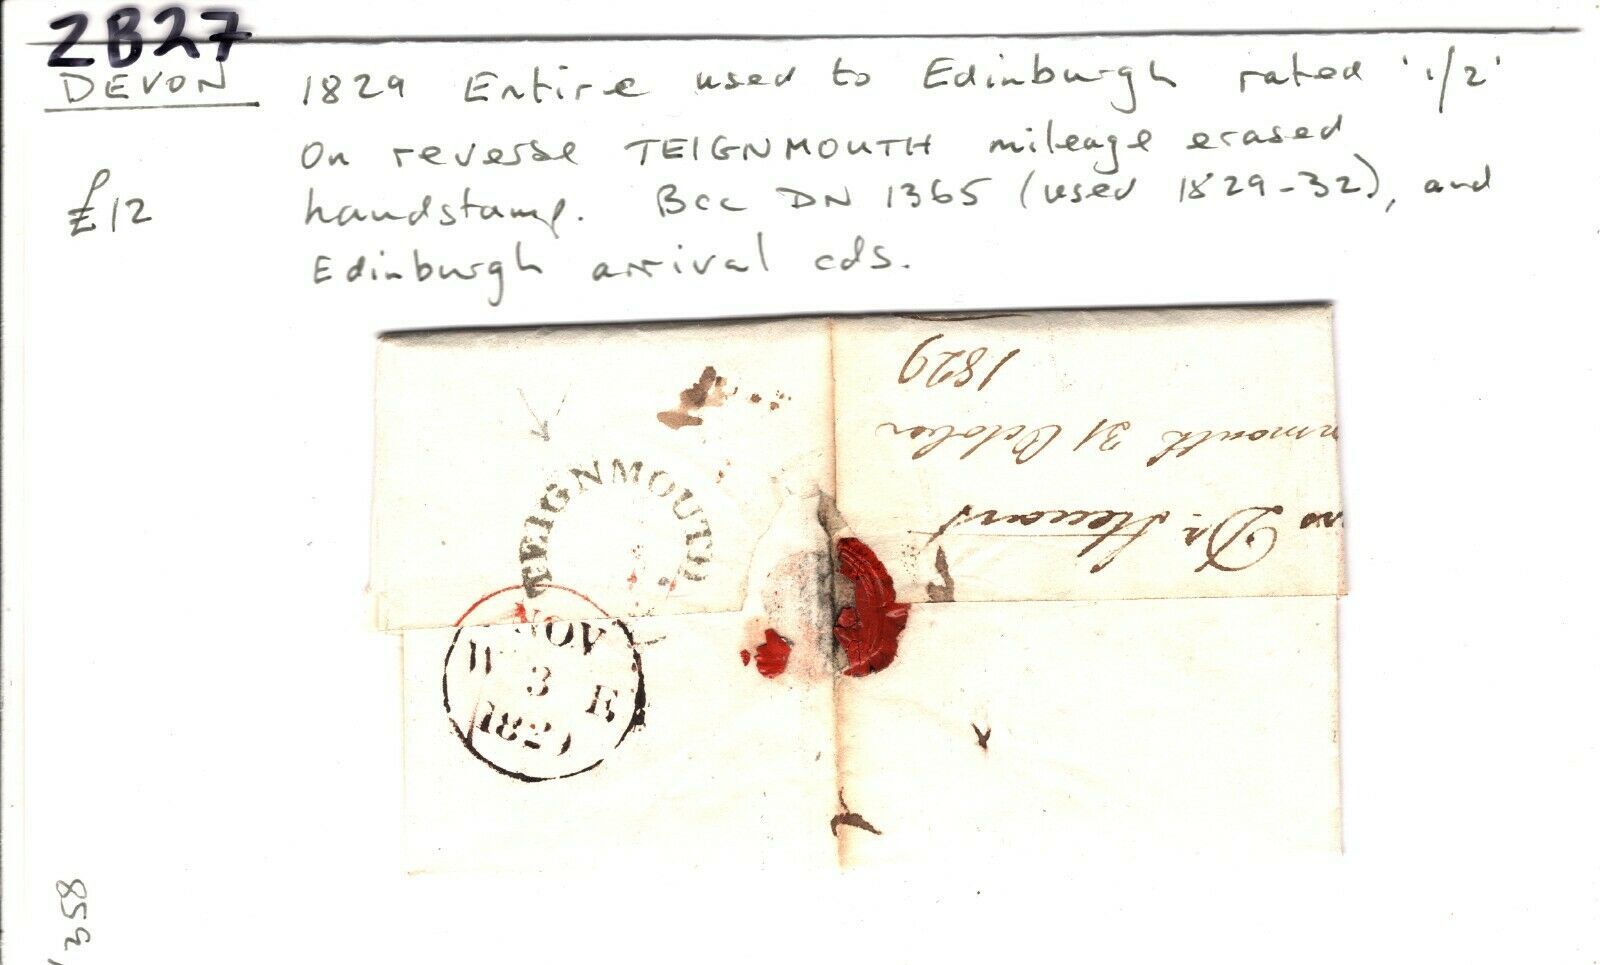 2B27
DEVON
£12
1829 Entire used to Edinburgh rated '1/2'
On reverse TEIGNMOUTH mileage erased
handstamp. Bcc DN 1365 (used 1829-32), and
Edinburgh arrival cds.
TEIGNMOUTH
NOV
3 E
1829
Dr. Steuart
nmouth 31 October
1829
358